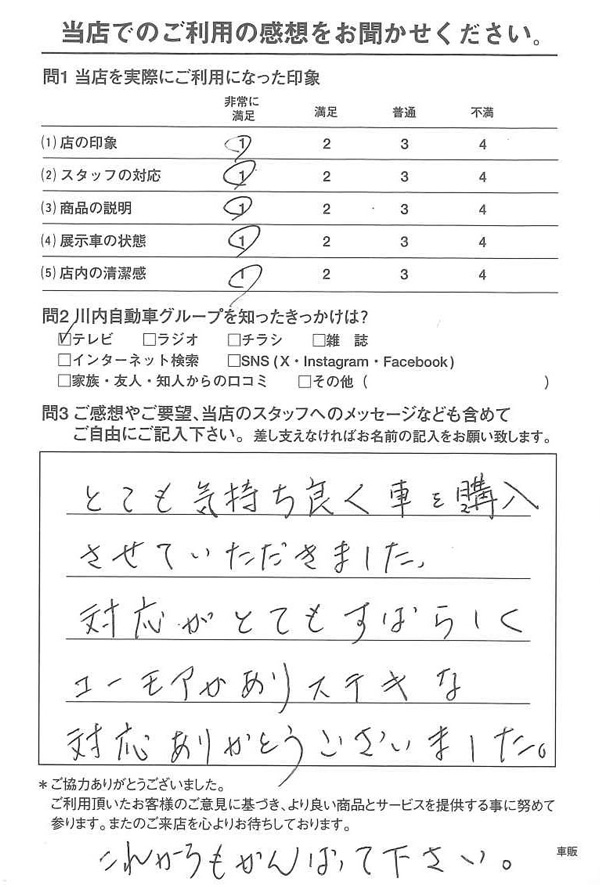 当店でのご利用の感想をお聞かせください。
問1 当店を実際にご利用になった印象
非常に満足 満足 普通 不満
(1)店の印象 1 2 3 4
(2)スタッフの対応 1 2 3 4
(3)商品の説明 1 2 3 4
(4)展示車の状態 1 2 3 4
(5)店内の清潔感 1 2 3 4
問2 川内自動車グループを知ったきっかけは?
☑テレビ □ラジオ □チラシ □雑 誌
□インターネット検索 □SNS(X・Instagram・Facebook)
□家族・友人・知人からの口コミ □その他( )
問3 ご感想やご要望、当店のスタッフへのメッセージなども含めて
ご自由にご記入下さい。差し支えなければお名前の記入をお願い致します。
とても気持ち良く車を購入
させていただきました。
対応がとてもすばらしく
ユーモアがありステキな
対応ありがとうございました。
*ご協力ありがとうございました。
ご利用頂いたお客様のご意見に基づき、より良い商品とサービスを提供する事に努めて
参ります。またのご来店を心よりお待ちしております。
車販
これからもがんばって下さい。